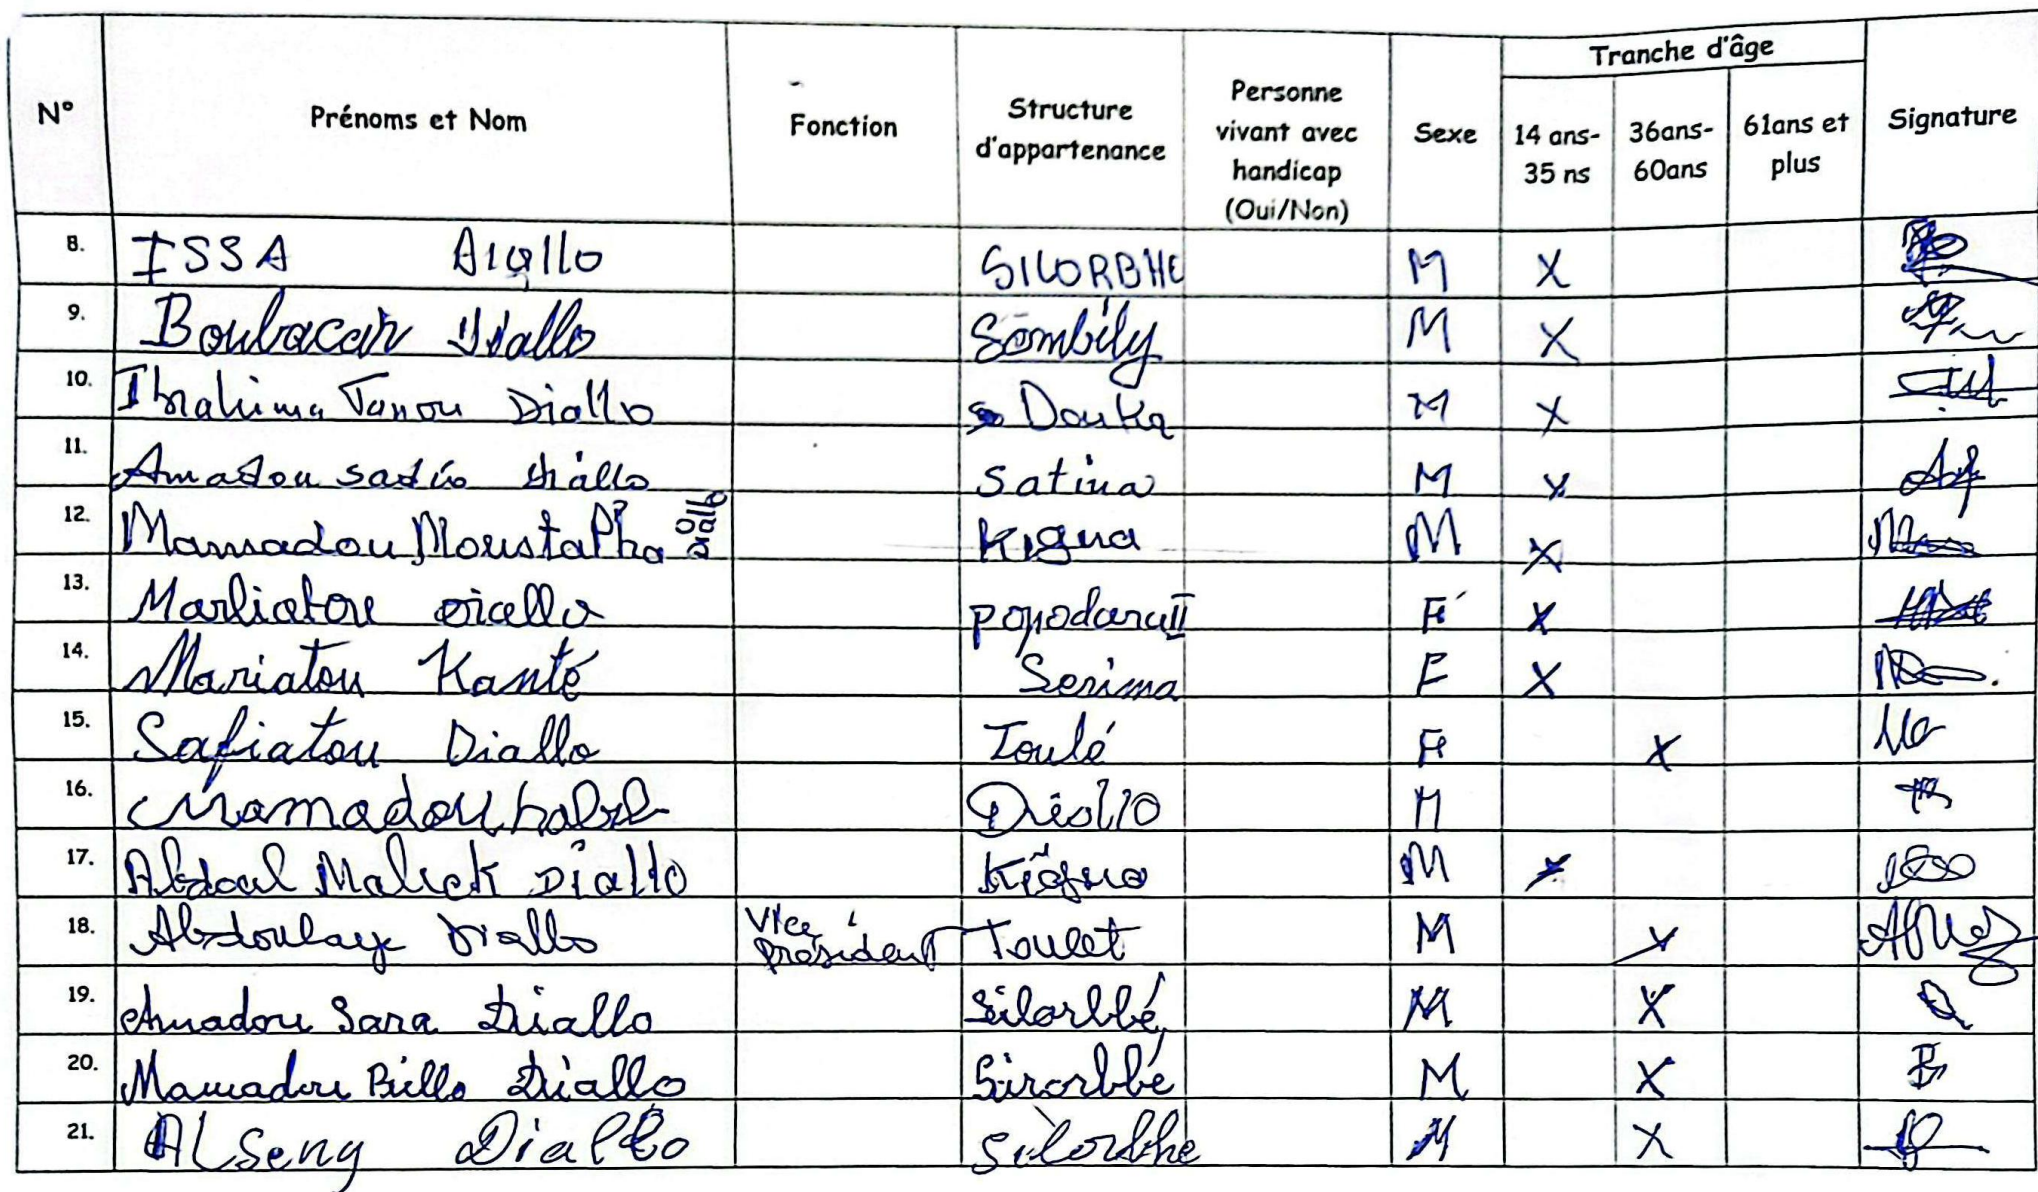 N° Prénoms et Nom Fonction Structure d'appartenance Personne vivant avec handicap (Oui/Non) Sexe Tranche d'âge 14 ans-35 ns 36ans-60ans 61ans et plus Signature
8. ISSA Diallo SILORBHE M X
9. Boubacar Diallo Sombily M X
10. Ibrahima Tanou Diallo Douka M X
11. Amadou sadio diallo Satina M X
12. Mamadou Moustapha diallo Kigna M X
13. Marliatou diallo popodaraII F X
14. Mariatou Kanté Serima F X
15. Safiatou Diallo Toulé F X
16. Mamadou M
17. Abdoul Malick Diallo M X
18. Abdoulaye Diallo Vice président Toulet M X
19. Amadou Sara Diallo Silorbbé M X
20. Mamadou Billo Diallo Sirorbbé M X
21. ALSeny Diallo Silorbhe M X